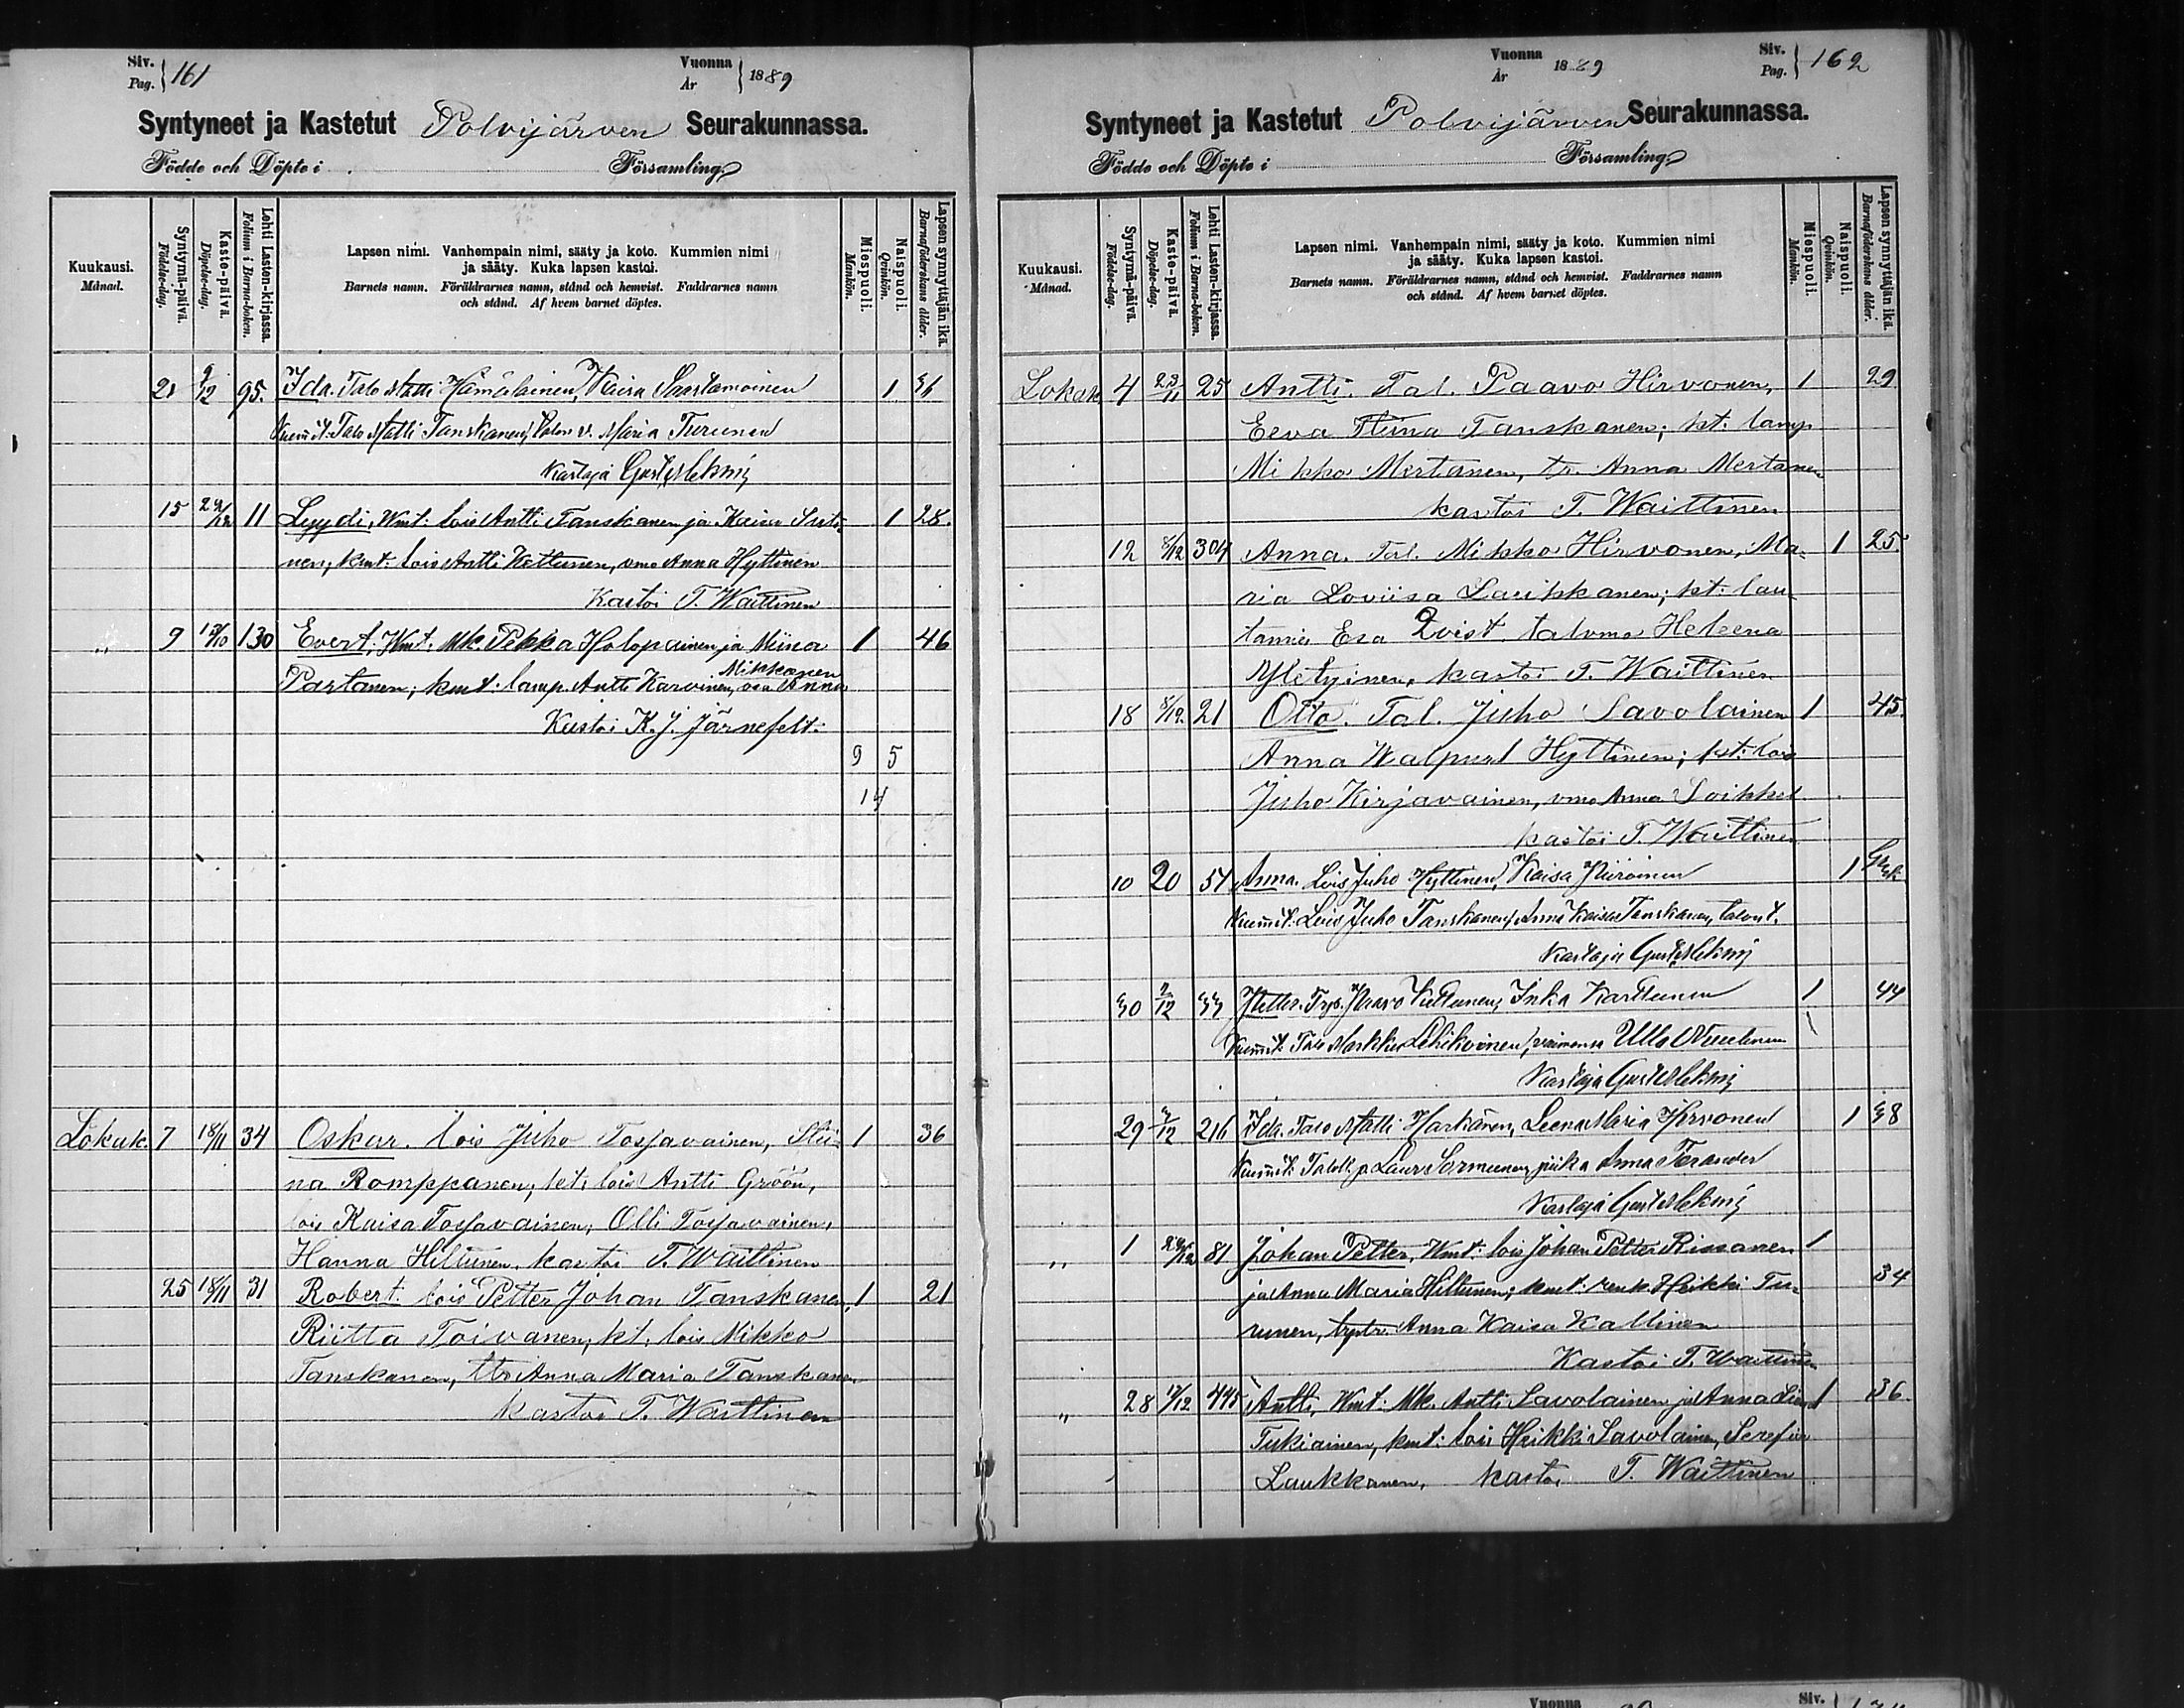 Siv. Pag. 161 Vuonna År 1889
Syntyneet ja Kastetut Polvijärven Seurakunnassa.
Födde och Döpte i Församling.
Kuukausi. Månad.
Syntymä-päivä. Födelse-dag.
Kaste-päivä. Döpelse-dag.
Lehti Lasten-kirjassa. Folium i Barna-boken.
Lapsen nimi. Vanhempain nimi, sääty ja koto. Kummien nimi
ja sääty. Kuka lapsen kastoi.
Barnets namn. Föräldrarnes namn, stånd och hemvist. Faddrarnes namn
och stånd. Af hvem barnet döptes.
Miespuoli. Mankön.
Naispuoli. Qvinkön.
Lapsen synnyttäjän ikä. Barnaföderskans ålder.
21 9/12 95. Ida. Talo Matti Hämäläinen, Kaisa Saastamoinen 1 36
Kummit: Talo Matti Tanskanen, Talon v. Maria Turunen
Kastaja
15 29/12 11 Lyydi, Wmt: lois Antti Tanskanen ja Kaisa Suti- 1 28.
nen, kmt: lois Antti Kettunen, vmo Anna Hyttinen
Kastoi T. Waittinen
" 9 130 Evert, Wmt. Mk. Pekka Holopainen ja Miina 1 46
Mikkonen
Partanen; kmt: lamp. Antti Karvinen, Anna
Kastoi K. J. Järnefelt.
9 5
14
Lokak. 7 18/11 34 Oskar. lois Juho Tosjavainen, Stii- 1 36
na Romppanen, kt: lois Antti Gröön,
lois Kaisa Tosjavainen, Olli Tosjavainen,
Hanna Hiltunen, kastoi T. Waittinen
25 18/11 31 Robert. lois Petter Johan Tanskanen, 1 21
Riitta Toivanen; kt. lois Mikko
Tanskanen, ttr Anna Maria Tanskanen
kastoi T. Waittinen
Vuonna År 1889 Siv. Pag. 162
Syntyneet ja Kastetut Polvijärven Seurakunnassa.
Födde och Döpte i Församling.
Kuukausi. Månad.
Syntymä-päivä. Födelse-dag.
Kaste-päivä. Döpelse-dag.
Lehti Lasten-kirjassa. Folium i Barna-boken.
Lapsen nimi. Vanhempain nimi, sääty ja koto. Kummien nimi
ja sääty. Kuka lapsen kastoi.
Barnets namn. Föräldrarnes namn, stånd och hemvist. Faddrarnes namn
och stånd. Af hvem barnet döptes.
Miespuoli. Mankön.
Naispuoli. Qvinkön.
Lapsen synnyttäjän ikä. Barnaföderskans ålder.
Lokak. 4 23/11 25 Antti. Tal. Paavo Hirvonen, 1 29
Eeva Stiina Tanskanen; kt: lamp
Mikko Mertanen, tr. Anna Mertanen
kastoi T. Waittinen
12 8/12 304 Anna. Tal. Mikko Hirvonen, Ma- 1 25.
ria Loviisa Laukkanen; kt: lau-
tamies Esa Qvist. talvmo Heleena
Yletyinen, kastoi T. Waittinen
18 8/12. 21 Otto. Tal. Juho Savolainen 1 45.
Anna Walpuri Hyttinen; kt: lois
Juho Kirjavainen, vmo Anna Soikkel
kastoi T. Waittinen
10 20 54 Anna. Lois Juho Hyttinen, Kaisa Piiroinen 1
Kummit: Lois Juho Tanskanen, Anna Kaisa Tanskanen, talon t.
Kastaja
30 2/12 33 Petter. Paavo Kettunen, Inka Karttunen 1 44
Kummit: Talo Markku Lehikoinen, vaimonsa Ulla
Kastaja
29 2/12 216 Ida. Talo Matti Harkänen, Leena Maria Hirvonen 1 38
Kummit: Taloll. p. Lauri Sormunen, piika Anna
Kastaja
" 1 29/12 81 Johan Petter, Wmt: lois Johan Petter Rissanen 1
ja Anna Maria Hiltunen; kmt: renk. Heikki Tu- 34
runen, tyttr. Anna Kaisa Kallinen
Kastoi T. Waittinen
" 28 445 Antti, Wmt: Mk. Antti Savolainen ja Anna Liisa 1 36.
Tukiainen, kmt: lois Heikki Savolainen, Serefia
Laukkanen, kastoi T. Waittinen
Vuonna Siv.